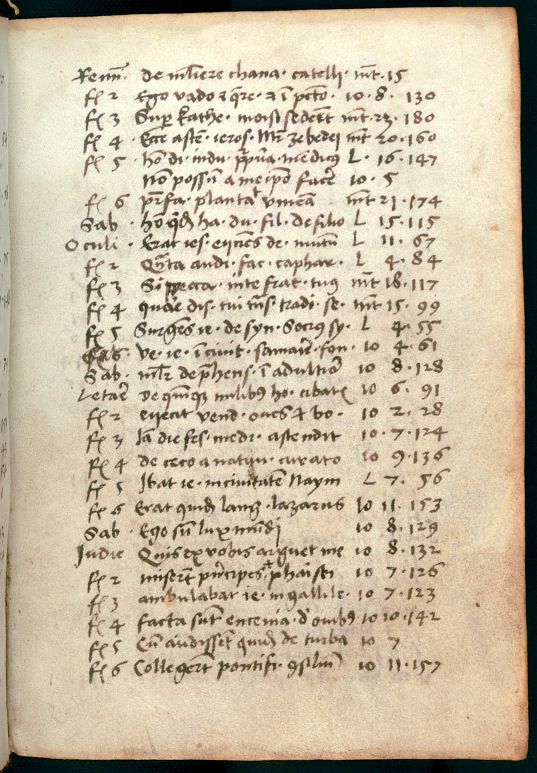 Remi. de mliere chana. catelli. mt. 15
fr 2 Ego vado & qre. & i pcto. 10. 8. 130
fr 3 Sup kathe. moisi sedert mt. 23. 180
fr 4 Ecce aste. ieros. mr zebedei mt 20. 160
fr 5 ho. di. indu. prpura. medicus L. 16. 147
Non possu a me ipo facere 10. 5
fr 6 pr. fa. plantat vinea. mt 21. 174
Sab. ho qda ha. du. fil. de filio L 15. 115
Oculi. Erat ies. eijciens de. mutu L 11. 67
fr 2 Qnta audi. fac. caphar. L 4. 84
fr 3 Si pecca. inte frat. tuus mt 18. 117
fr 4 quare dis. tui tns. tradi. se. mt 15. 99
fr 5 Surges ie. de syn. Socrus sy. L 4. 55
ve. ie. i civit. samarie. fon. 10 4. 61
Sab. mlr deprhens. i adulterio 10 8. 128
Letare de quinq milibus ho. cibatis 10 6. 91
fr 2 eijecit vend. oves & bo. 10 2. 28
fr 3 Ia die fes. medi. astendit 10. 7. 124
fr 4 de ceco a nativi. curato 10 9. 136
fr 5 Ibat ie. in civitatem Naym L 7. 56
fr 6 Erat quida lang. lazarus 10 11. 153
Sab Ego su lux mundi 10 8. 129
Iudic Quis ex vobis arguet me 10 8. 132
fr 2 miserut principes & pharisei 10 7. 126
fr 3 ambulabat ie. in gallile. 10 7. 123
fr 4 facta sut encenia. d ovibus 10 10. 142
fr 5 Cu audisset quida de turba 10 7
fr 6 Collegert pontifi. 9siliu 10 11. 157